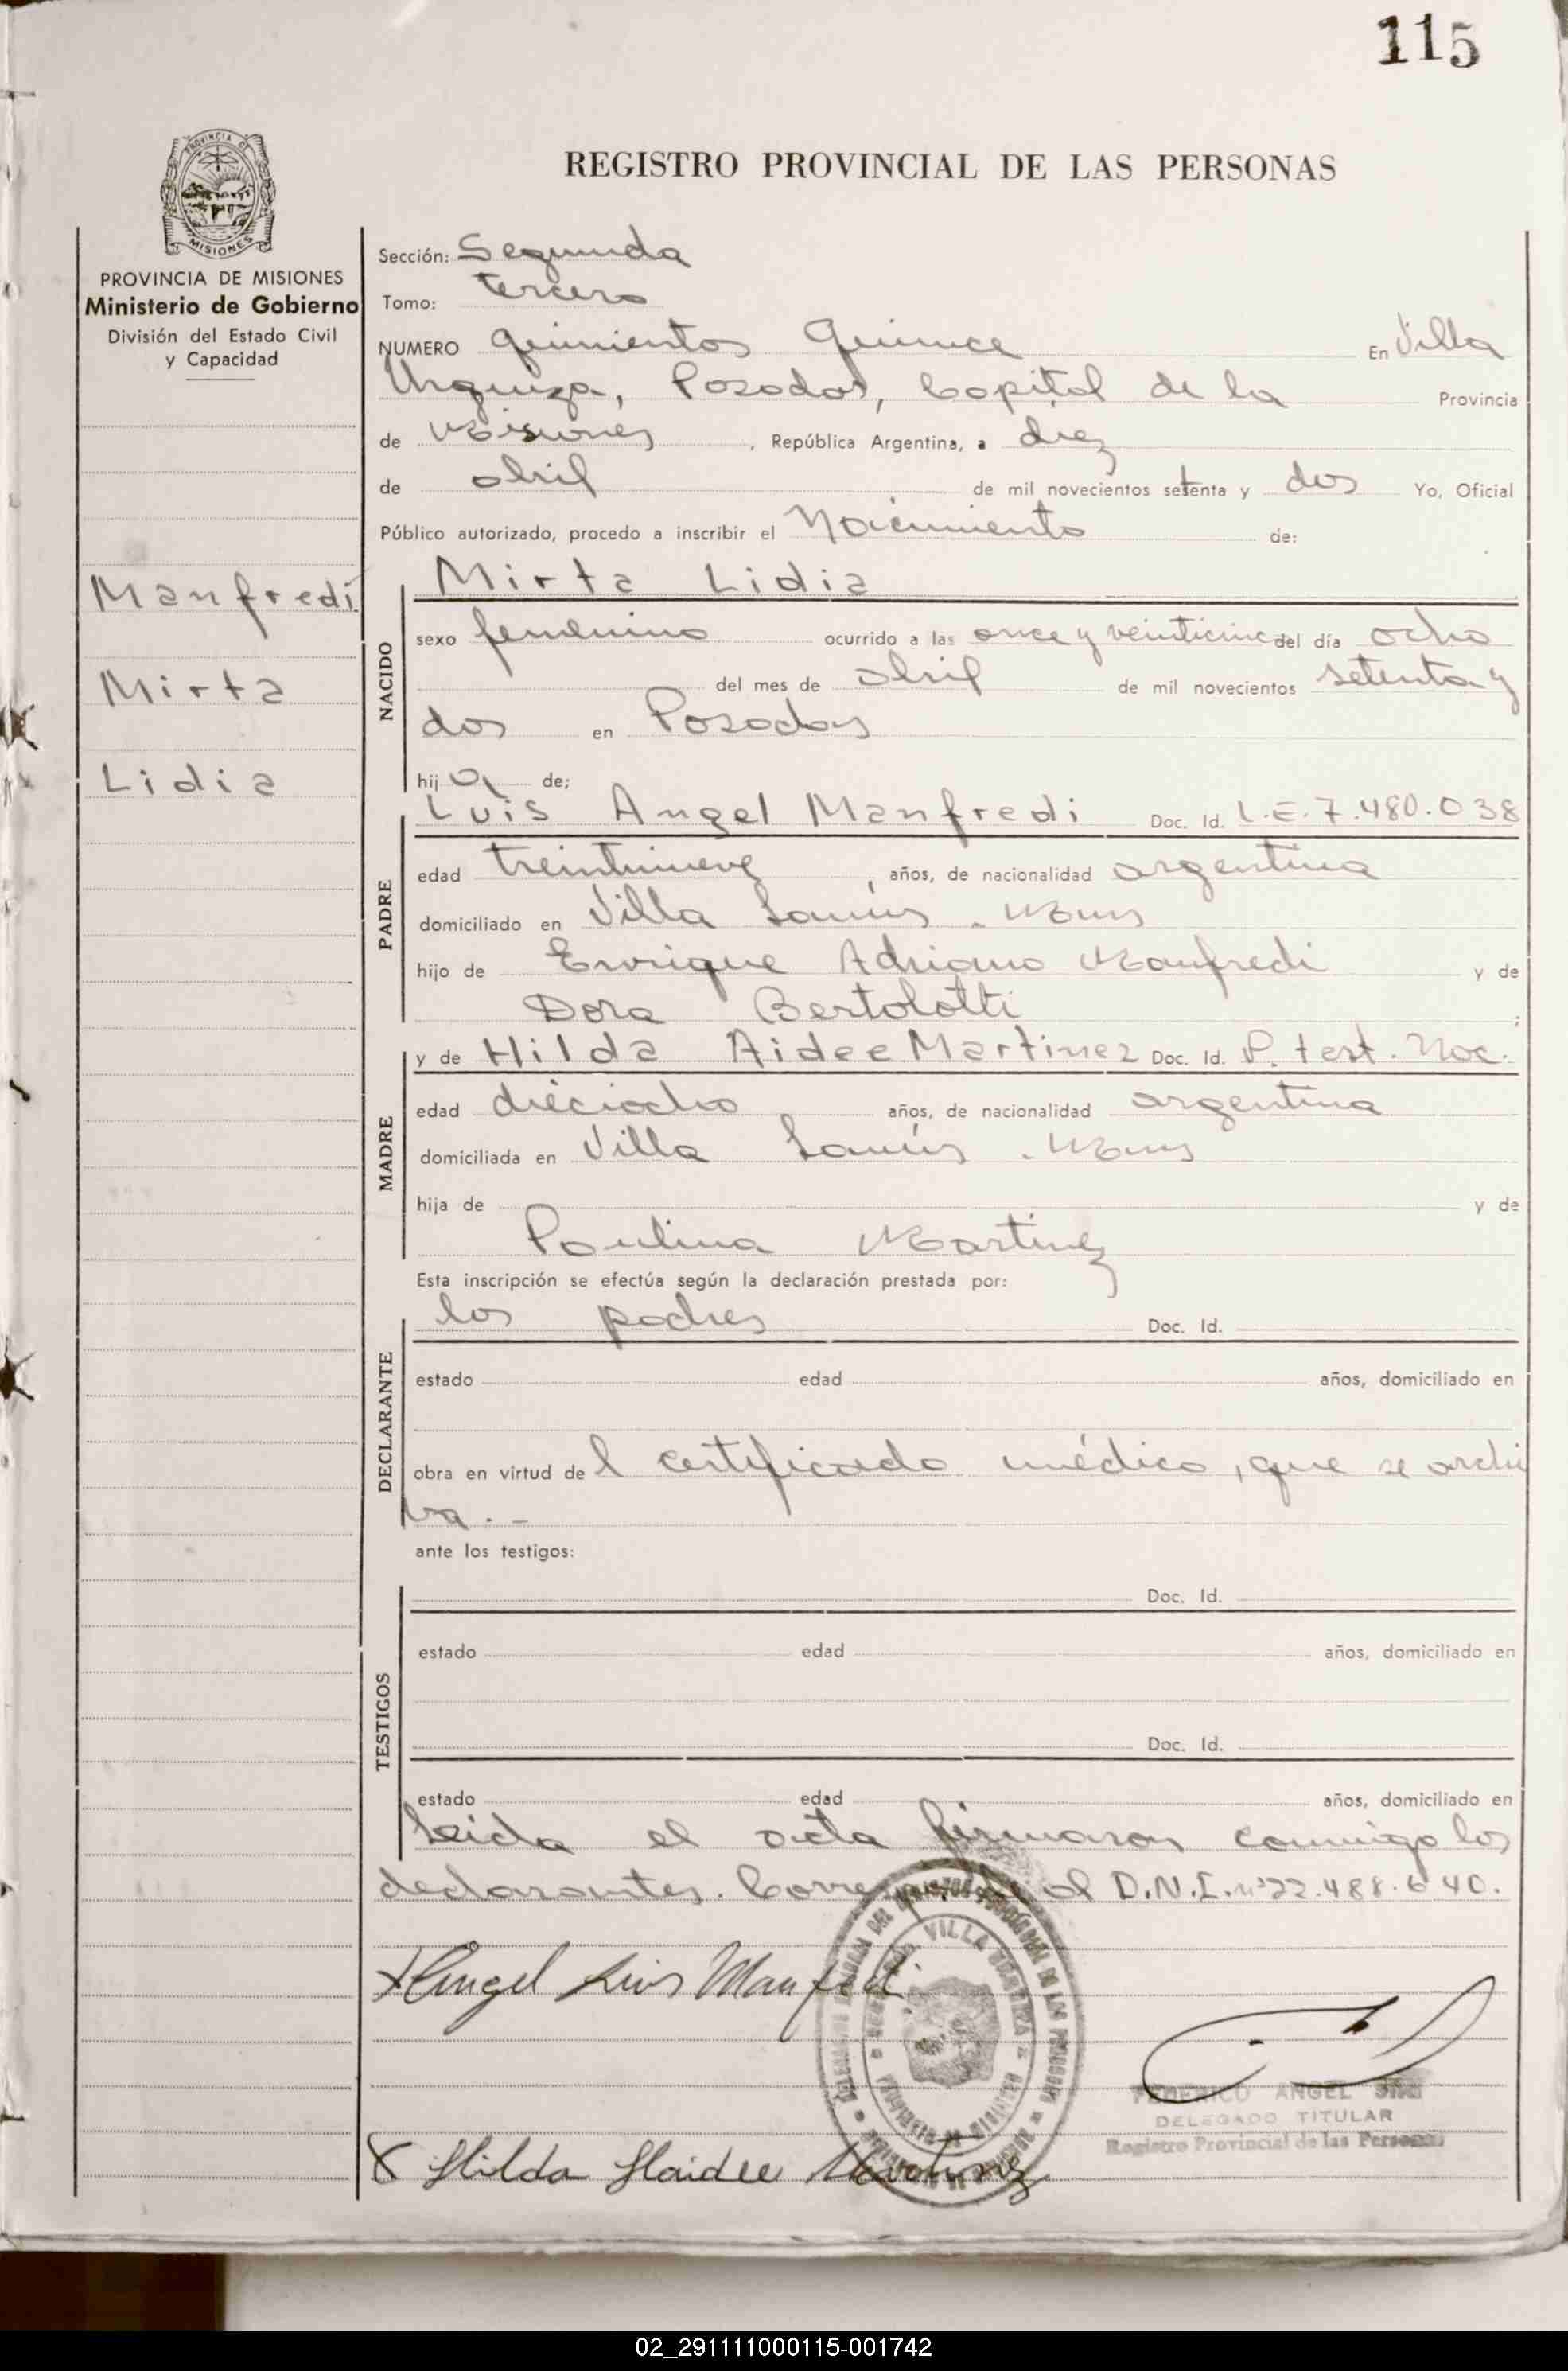 115
PROVINCIA DE
MISIONES
REGISTRO PROVINCIAL DE LAS PERSONAS
PROVINCIA DE MISIONES
Ministerio de Gobierno
División del Estado Civil
y Capacidad
Manfredi
Mirta
Lidia
Sección: Segunda
Tomo: tercero
NUMERO quinientos Quince En Villa
Urquiza, Posadas, Capital de la Provincia
de Misiones, República Argentina, a diez
de abril de mil novecientos setenta y dos Yo, Oficial
Público autorizado, procedo a inscribir el Nacimiento de:
NACIDO
Mirta Lidia
sexo femenino ocurrido a las once y veinticinc del día ocho
del mes de abril de mil novecientos setenta y
dos en Posadas
hija de;
PADRE
Luis Angel Manfredi Doc. Id. L.E. 7.480.038
edad treintinueve, años, de nacionalidad argentina
domiciliado en Villa Lanús - Mnes
hijo de Enrique Adriano Manfredi y de
Dora Bertolotti;
MADRE
y de Hilda Aidee Martinez Doc. Id. P. test. Nac.
edad dieciocho, años, de nacionalidad argentina
domiciliada en Villa Lanús - Mnes
hija de y de
Paulina Martinez
Esta inscripción se efectúa según la declaración prestada por:
DECLARANTE
los padres Doc. Id.
estado edad años, domiciliado en
obra en virtud del certificado médico, que se archi
va.-
ante los testigos:
TESTIGOS
Doc. Id.
estado edad años, domiciliado en
Doc. Id.
estado edad años, domiciliado en
Leida el acta firmaron conmigo los
declarantes. Corresponde al D.N.I. nº 22.488.640.
Angel Luis Manfredi
VILLA URQUIZA
FEDERICO ANGEL
DELEGADO TITULAR
Registro Provincial de las Personas
Hilda Haidee Martinez
02_291111000115-001742